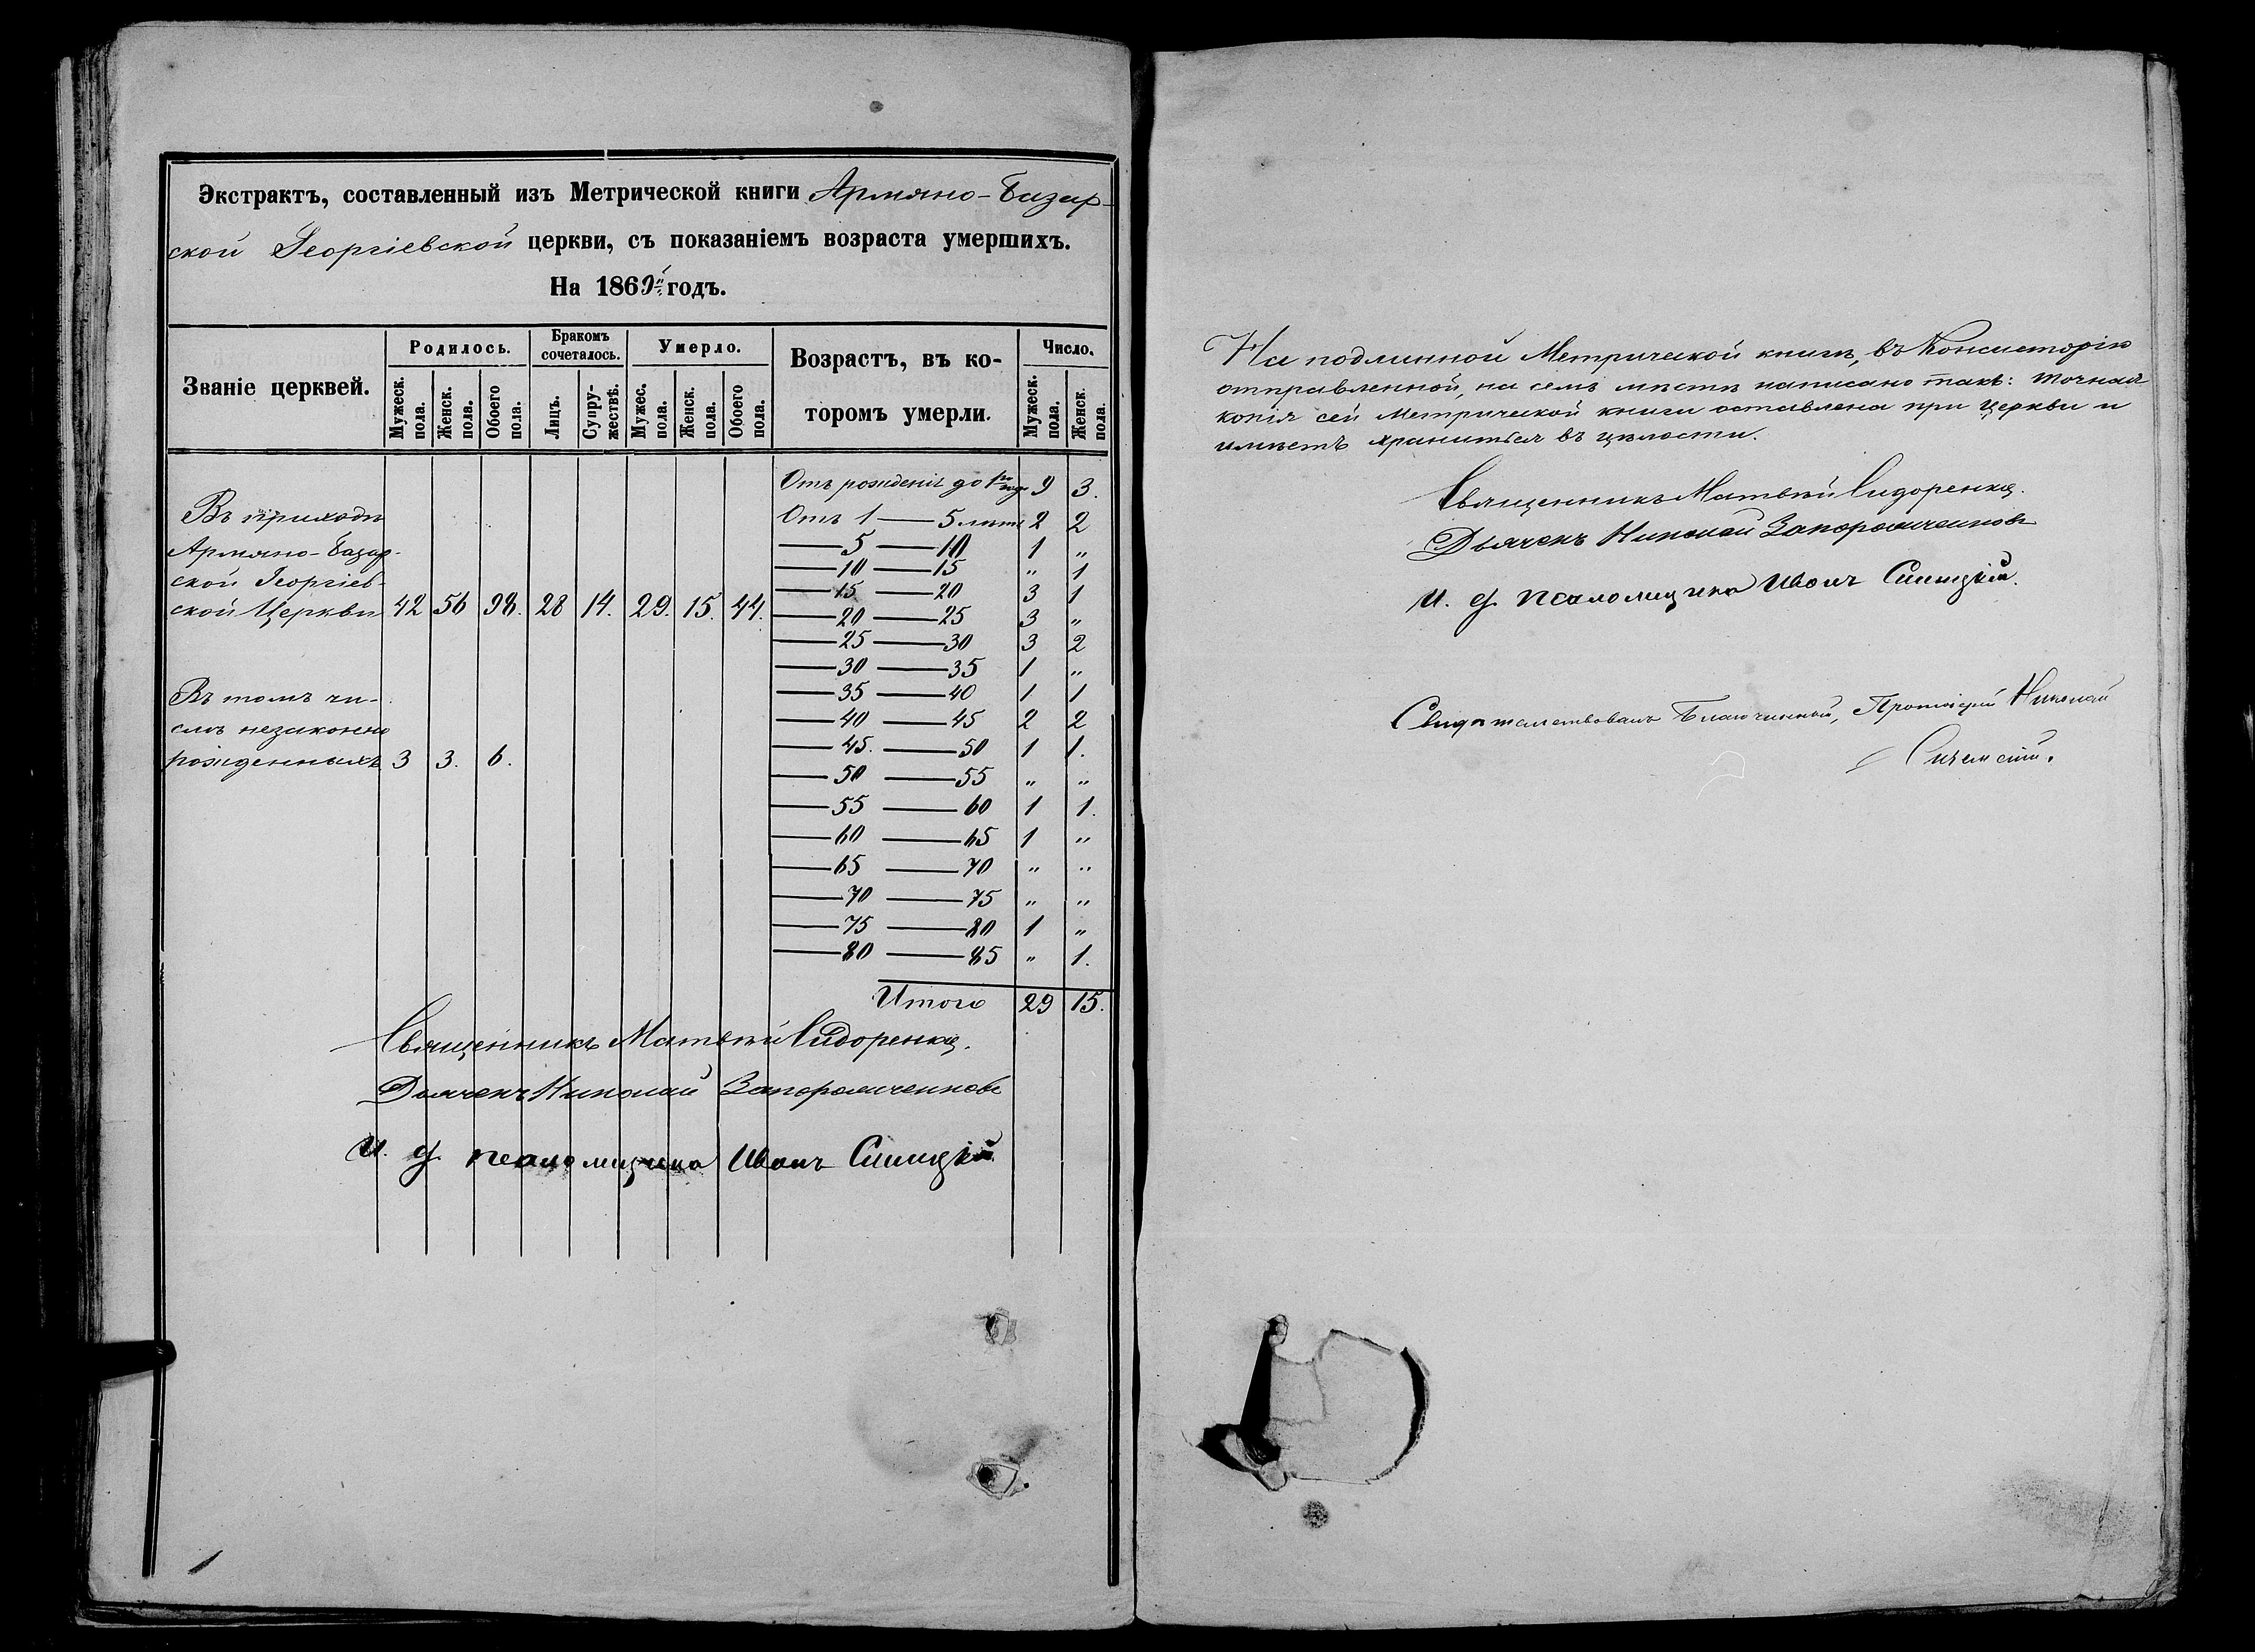 Экстрактъ, составленный изъ Метрической книги Армяно-Базар-
ской Георгіевской церкви, съ показаніемъ возраста умершихъ.
На 1869й годъ.
Званіе церквей.
Родилось.
Мужеск. пола.
Женск. пола.
Обоего пола.
Бракомъ сочеталось.
Лицъ.
Супру-жествъ.
Умерло.
Мужес. пола.
Женск. пола.
Обоего пола.
Возрастъ, въ ко-
торомъ умерли.
Число.
Мужеск. пола.
Женск. пола.
Въ приходѣ
Армяно-Базар-
ской Георгіев-
ской Церкви 42 56 98. 28 14. 29. 15. 44.
Въ томъ чи-
слѣ незаконно
рожденныхъ 3 3. 6.
Отъ рожденія до 1го года 9 3.
Отъ 1 — 5 лѣтъ 2 2
— 5 — 10 1 „
— 10 — 15 „ 1
— 15 — 20 3 1
— 20 — 25 3 „
— 25 — 30 3 2
— 30 — 35 1 „
— 35 — 40 1 1
— 40 — 45 2 2
— 45. — 50 1 1.
— 50 — 55 „ „
— 55 — 60 1 1.
— 60 — 65 1 „
— 65 — 70 „ „
— 70 — 75 „ „
— 75 — 80 1 „
— 80 — 85 „ 1.
Итого 29 15.
Священникъ Матвѣй Сидоренко.
Дьячекъ Николай Запорожченковъ
И. д. псаломщика Иванъ Синицкій
На подлинной Метрической книгѣ, въ Консисторію
отправленной, на семъ мѣстѣ написано такъ: Точная
копія сей Метрической книги оставлена при Церкви и
имѣетъ храниться въ цѣлости.
Священникъ Матвѣй Сидоренко.
Дьячекъ Николай Запорожченковъ
И. д. псаломщика Иванъ Синицкій.
Свидѣтельствовалъ Благочинный, Протоіерей Николай